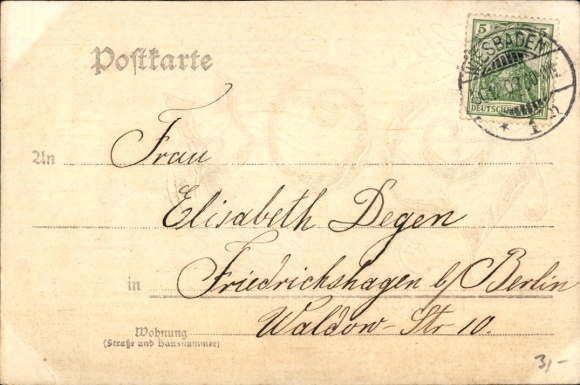 Postkarte
5
WIESBADEN
DEUTSCHES
* 1
An Frau
Elisabeth Degen
in Friedrichshagen b/ Berlin
Waldow-Str 10.
Wohnung
(Straße und Hausnummer)
3,-